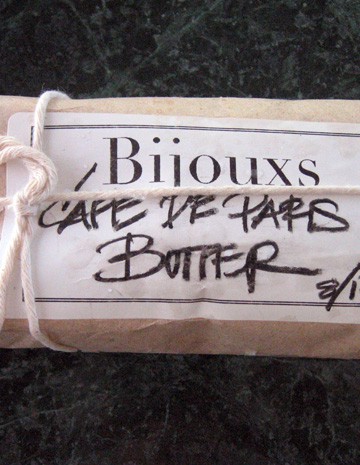 Bijouxs
CAFÉ DE PARIS
BUTTER
8/1